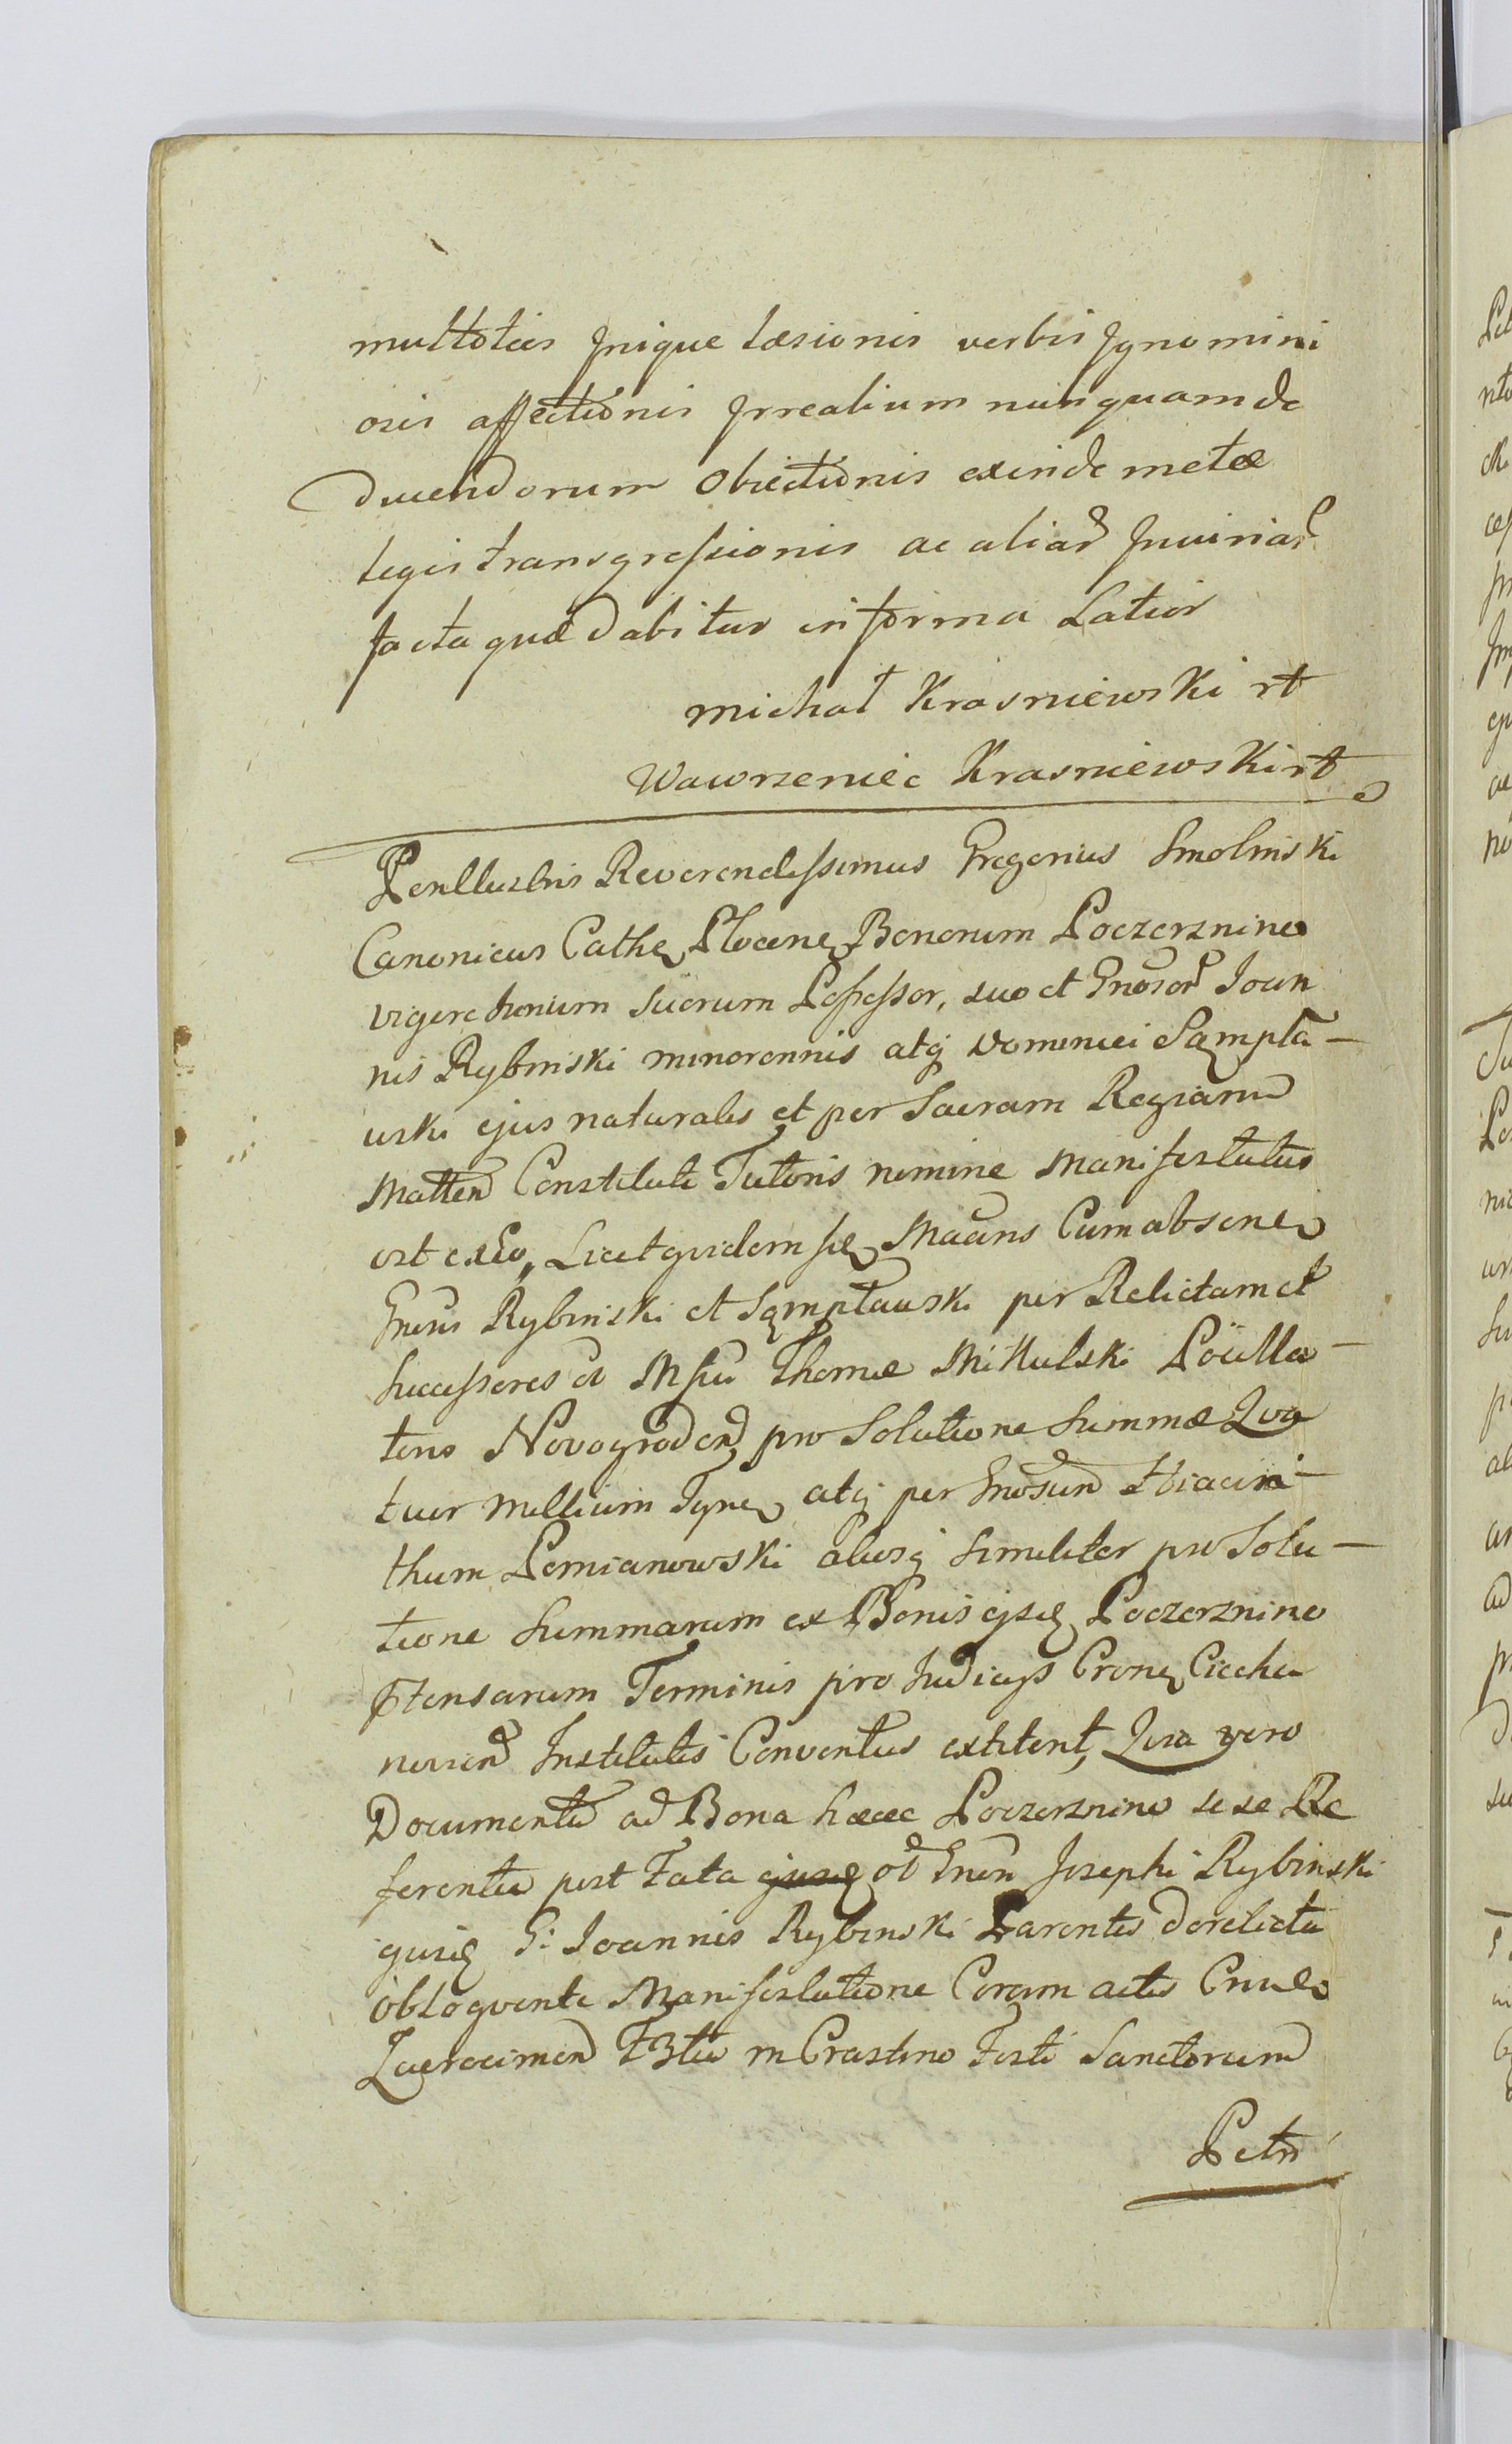 multoties Jnique læsionis verbis Jgnomini
osis affectionis Jrrealium nunquam de
ducendorum Obiectionis exinde metæ
legis transgressionis ac aliar Jniuriar
facta quæ dabitur in forma Latior
michał Krasniewski rt
Wawrzeniec Krasniewski rt
Perillustris Reverendissimus Gregorius Smolinski
Canonicus Cathe Plocene Bonorum Poczernino
vigore Jurium suorum Possessor, suo et Gnosor Joan
nis Rybinski minorennis atq Dominici Sampła-
wski ejus naturalis et per Sacram Regiam
Matten Constituti Tutoris nomine Manifestatus
est ex Eo, Licet quidem Macns Cum absene
Gneris Rybinski et Sampławski per Relictam et
Successores Thomæ Mikulski
toris Novogroden pro Solutione Summæ Qva
tuor Millium Tyne atq per Gnosum Hiacin-
thum Pomianowski aliosq similiter pro Solu-
tione Summarum ex Bonis Poczernino
ptensarum Terminis pro Judicys Crone Ciecha
novien Institutis Conventus extitent, Qvia vero
Documenta ad Bona hæcce Poczernino sese Re
ferentia post Fata Josephi Rybinski
G: Joannis Rybinski Parentis derelicta
Obloqvente Manifestatione Coram actis
Zacrocimen in Crastino Festi Sanctorum
Petri